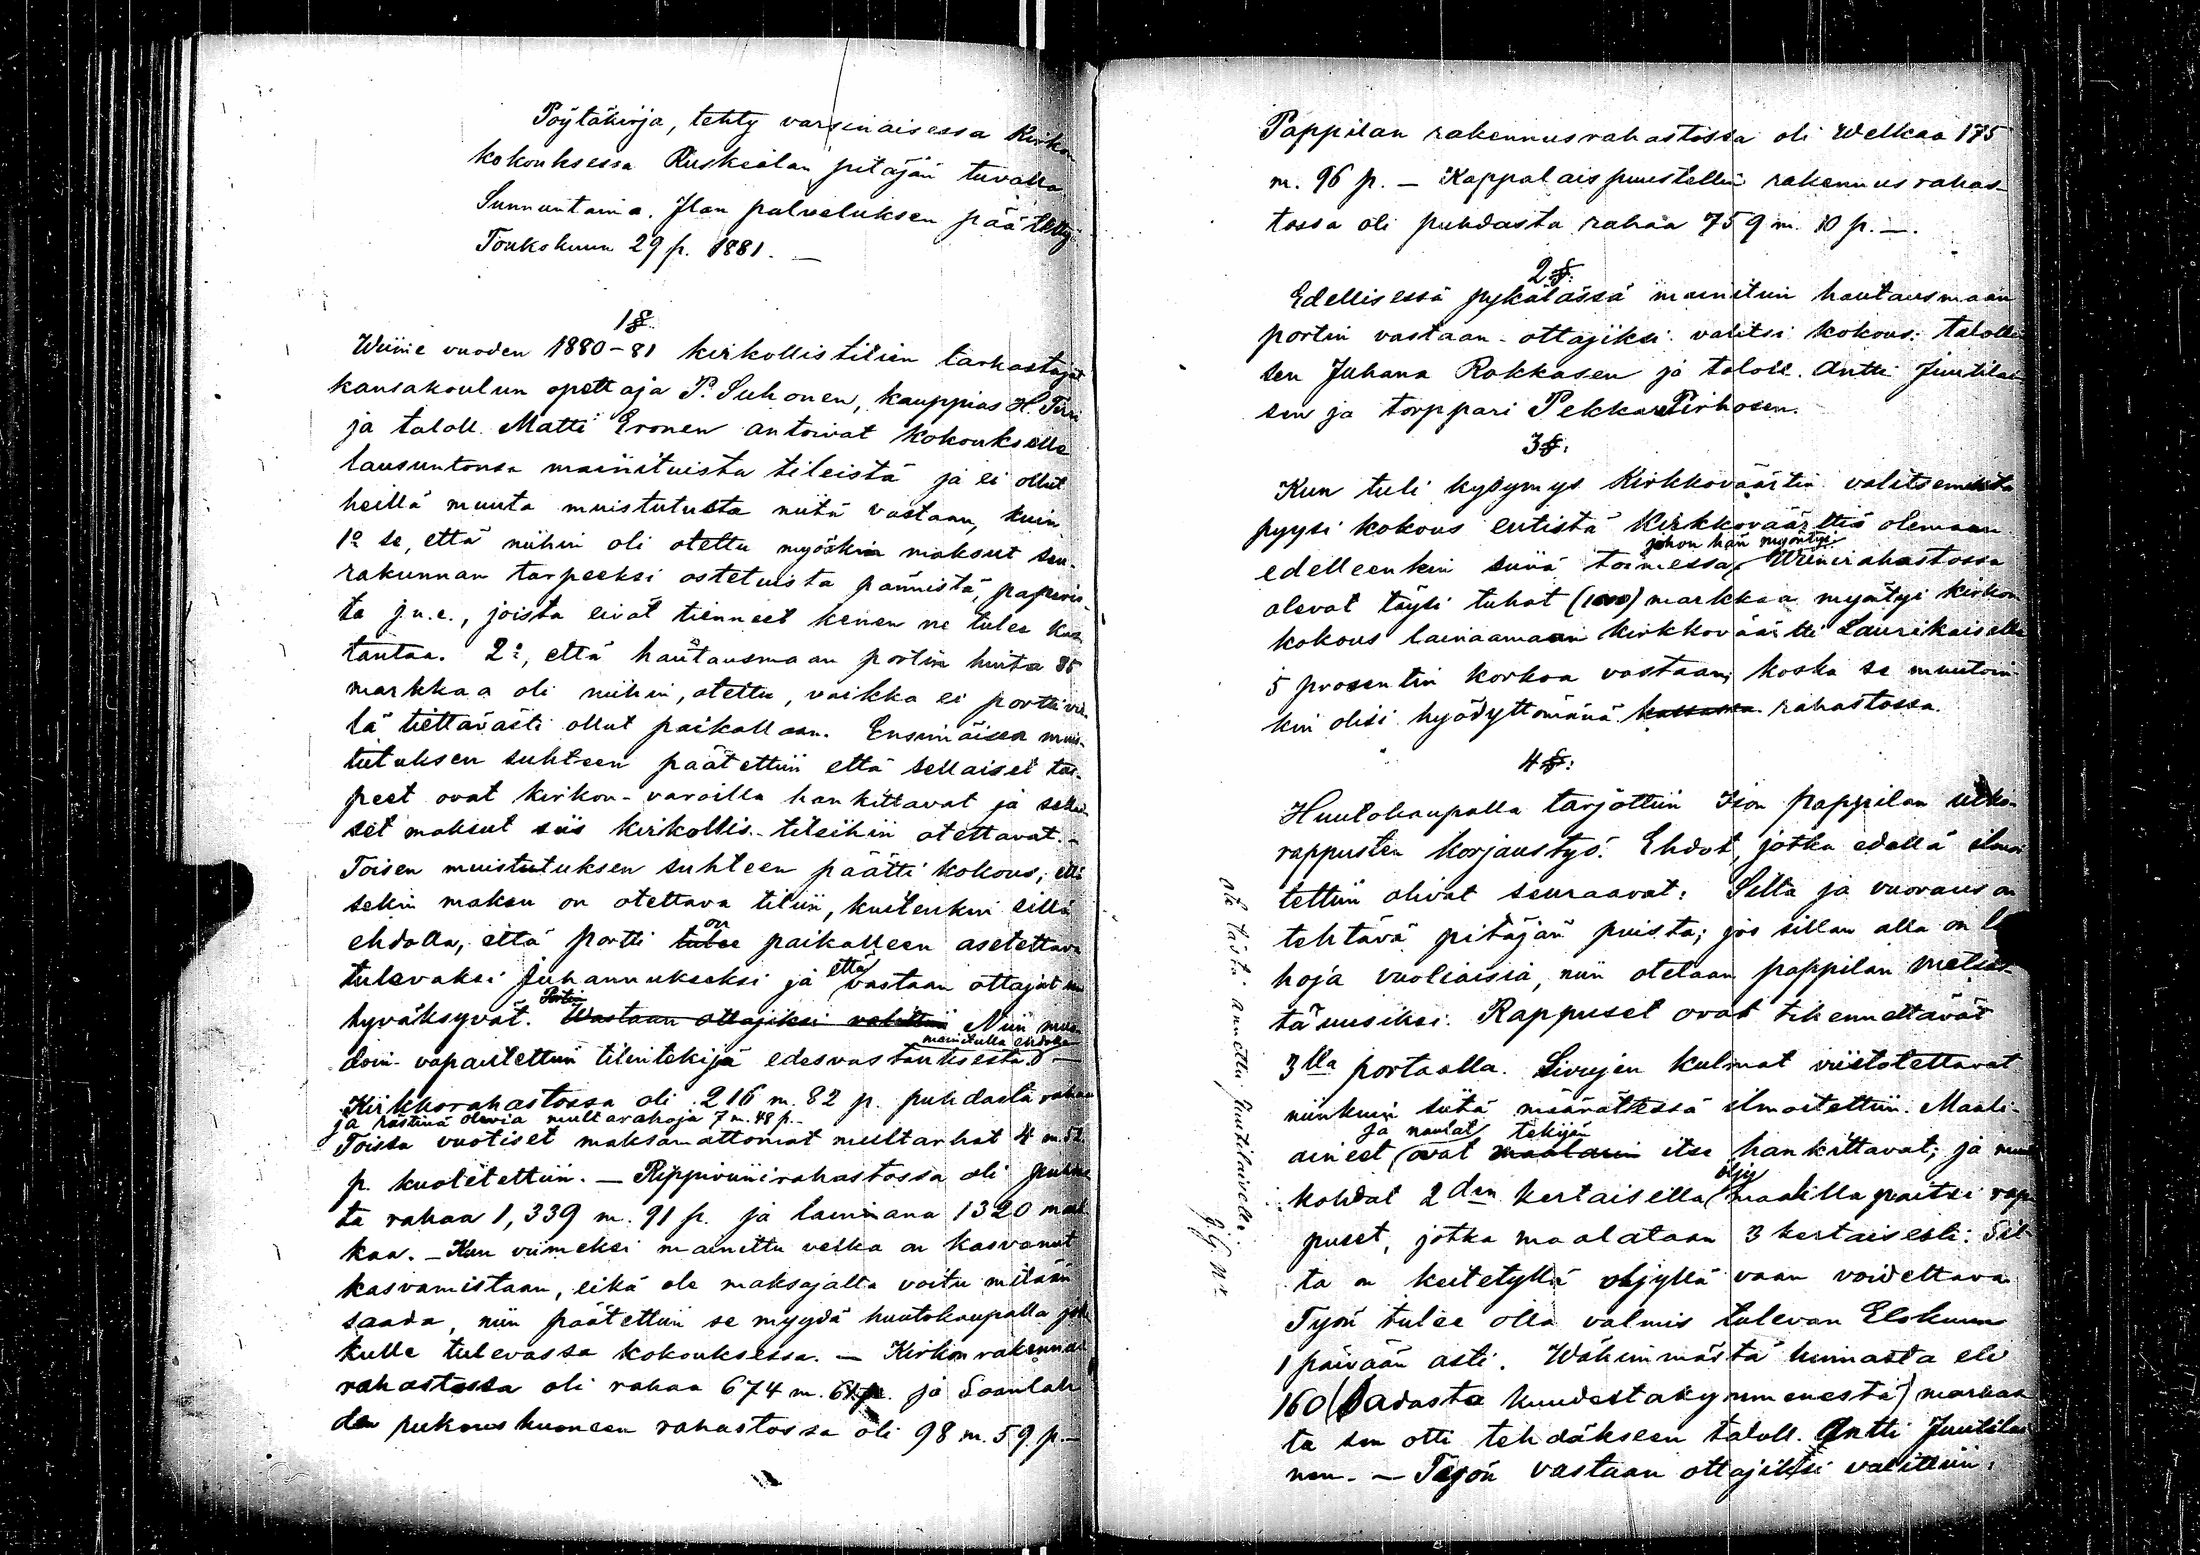 Pöytäkirja, tehty varsinaisessa Kirkon
kokouksessa Ruskealan pitäjän tuvalla
Sunnuntaina. Jlan palveluksen päätettyä
Toukokuun 29 p. 1881. —
1 §.
Wiime vuoden 1880-81 kirkollistilien tarkastajat
kansakoulun opettaja P. Suhonen, kauppias H. Tirri
ja taloll. Matti Eronen antoivat kokoukselle
lausuntonsa mainituista tileistä ja ei ollut
heillä muuta muistutusta niitä vastaan, kuin
1:o se, että niihin oli otettu myöskin maksut seu-
rakunnan tarpeeksi ostetuista pännistä, paperis-
ta j.n.e., joista eivät tienneet kenen ne tulee kus-
tantaa. 2:o, että hautausmaan portin hinta 85
markkaa oli niihin otettu, vaikka ei portti vie-
lä tiettävästi ollut paikallaan. Ensimäisen muis-
tutuksen suhteen päätettiin että sellaiset tar-
peet ovat kirkon-varoilla hankittavat ja sellai-
set maksut siis kirkollis-tileihin otettavat. -
Toisen muistutuksen suhteen päätti kokous, että
sekin maksu on otettava tiliin, kuitenkin sillä
on
ehdolla, että portti tulee paikalleen asetettava
että
tulevaksi Juhannukseksi ja vastaan ottajat sen
Portin
hyväksyvät. Wastaan ottajiksi valittiin Niin muo-
mainitulla ehdolla
doin vapautettiin tilintekijä edesvastauksesta. —
Kirkkorahastossa oli 216 m. 82 p. puhdasta rahaa
ja rästinä olevia multarahoja 7 m. 48 p. —
Toissa vuotiset maksamattomat multarhat 4 m. 52
p. kuoletettiin. — Rippiviinirahastossa oli puhdas-
ta rahaa 1,339 m. 91 p. ja lainana 1320 mark-
kaa. — Kun viimeksi mainittu velka on kasvanut
kasvamistaan, eikä ole maksajalta voitu mitään
saada, niin päätettiin se myydä huutokaupalla jol-
kulle tulevassa kokouksessa. — Kirkon rakennus
rahastossa oli rahaa 674 m. p. ja Soanlah-
den rukoushuoneen rahastossa oli 98 m. 59 p. —
Pappilan rakennusrahastossa oli Welkaa 175
m. 96 p. — Kappalaispuustellin rakennusrahas-
tossa oli puhdasta rahaa 759 m. 10 p. —.
2 §.
Edellisessä pykälässä mainitun hautausmaan
portin vastaan-ottajiksi valitsi kokous: talolli-
sen Juhana Rokkasen ja taloll. Antti Juutilai-
sen ja torppari Pekka Pirhosen.
3 §:
Kun tuli kysymys Kirkkoväärtin valitsemista
pyysi kokous entistä Kirkkoväärttiä olemaan
johon hän myöntyi.
edelleenkin siinä toimessa, Wiinirahastossa
olevat täysi tuhat (1000) markkaa myöntyi kirkon
kokous lainaamaan kirkkoväärtti Laurikaiselle
5 prosentin korkoa vastaan, koska se muutoin-
kin olisi hyödyttömänä kassassa rahastossa.
4 §:
Huutokaupalla tarjottiin Ison pappilan ulko-
rappusten korjaustyö. Ehdot, jotka edellä ilmoi-
tettiin olivat seuraavat: Silta ja vuoraus on
tehtävä pitäjän puista; jos sillan alla on la-
hoja vuoliaisia, niin otetaan pappilan metsäs-
tä uusiksi. Rappuset ovat rikennettävät
3lla portaalla. Sivujen kulmat viistotettavat
niinkuin siitä määrätessä ilmoitettiin. Maali-
ja naulat tekijän
aineet ovat maalarin itse hankittavat; ja muut
öljy
kohdat 2den kertaisella maalilla paitsi rap-
puset, jotka maalataan 3 kertaisesti: Sil-
ta on keitetyllä öljyllä vaan voidettava
Työn tulee olla valmis tulevan Elokuun
1 päivään asti. Wähimmästä hinnasta eli
160 (Sadasta kuudestakymmenestä) markas-
ta sen otti tehdäkseen taloll. Antti Juutilai-
nen. — Työn vastaan ottajiksi valittiin:
ote tästä annettu Juutilaiselle.